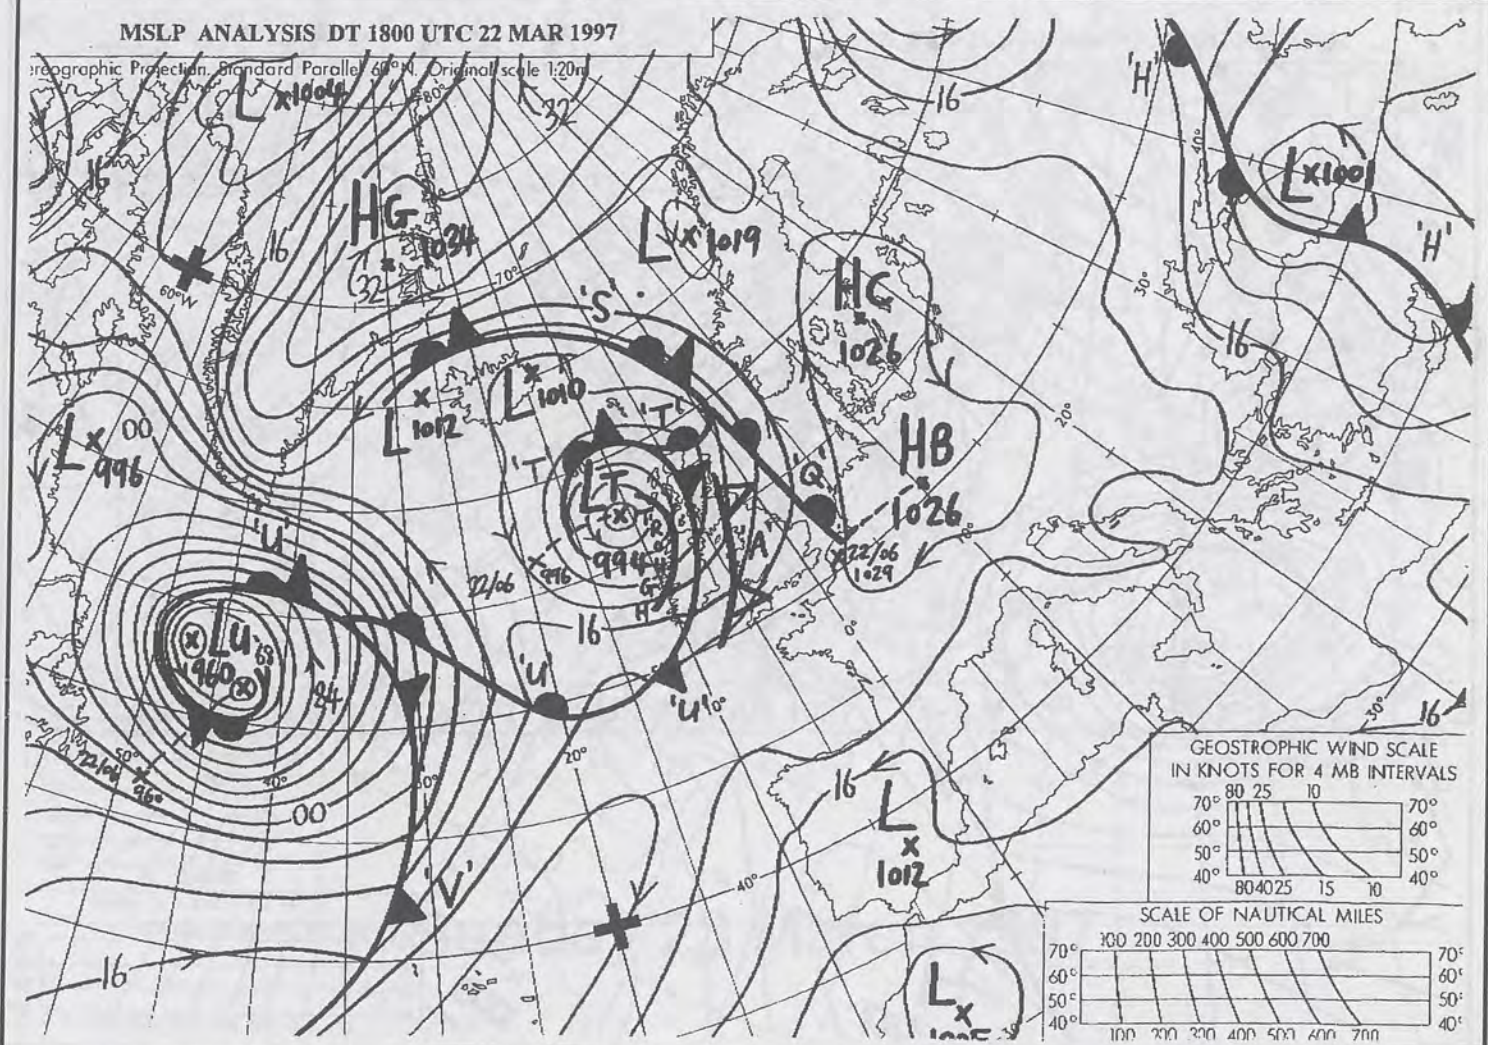 MSLP ANALYSIS DT 1800 UTC 22 MAR 1997
ereographic Projection. Standard Parallel 60°N. Original scale 1:20m
L x1004
80°
32
16
'H'
40°
L x1001
'H'
16
HG
1034
32
16
60°W
70°
L x 1019
HC
1026
30°
16
'S'
L x 1010
L x 1012
'T'
'T'
'Q'
HB
1026
20°
L x 996
00
LT
994
TROUGH
'A'
22/06
996
22/06
1029
0°
0°
16
'U'
LU
960
68
84
'U'
'U'
10°
20°
30°
40°
50°
22/06
960
00
'V'
16
16
40°
L
x
1012
L
x
16
30°
GEOSTROPHIC WIND SCALE
IN KNOTS FOR 4 MB INTERVALS
80 25 10
70° 70°
60° 60°
50° 50°
40° 40°
80 40 25 15 10
SCALE OF NAUTICAL MILES
100 200 300 400 500 600 700
70° 70°
60° 60°
50° 50°
40° 40°
100 200 300 400 500 600 700